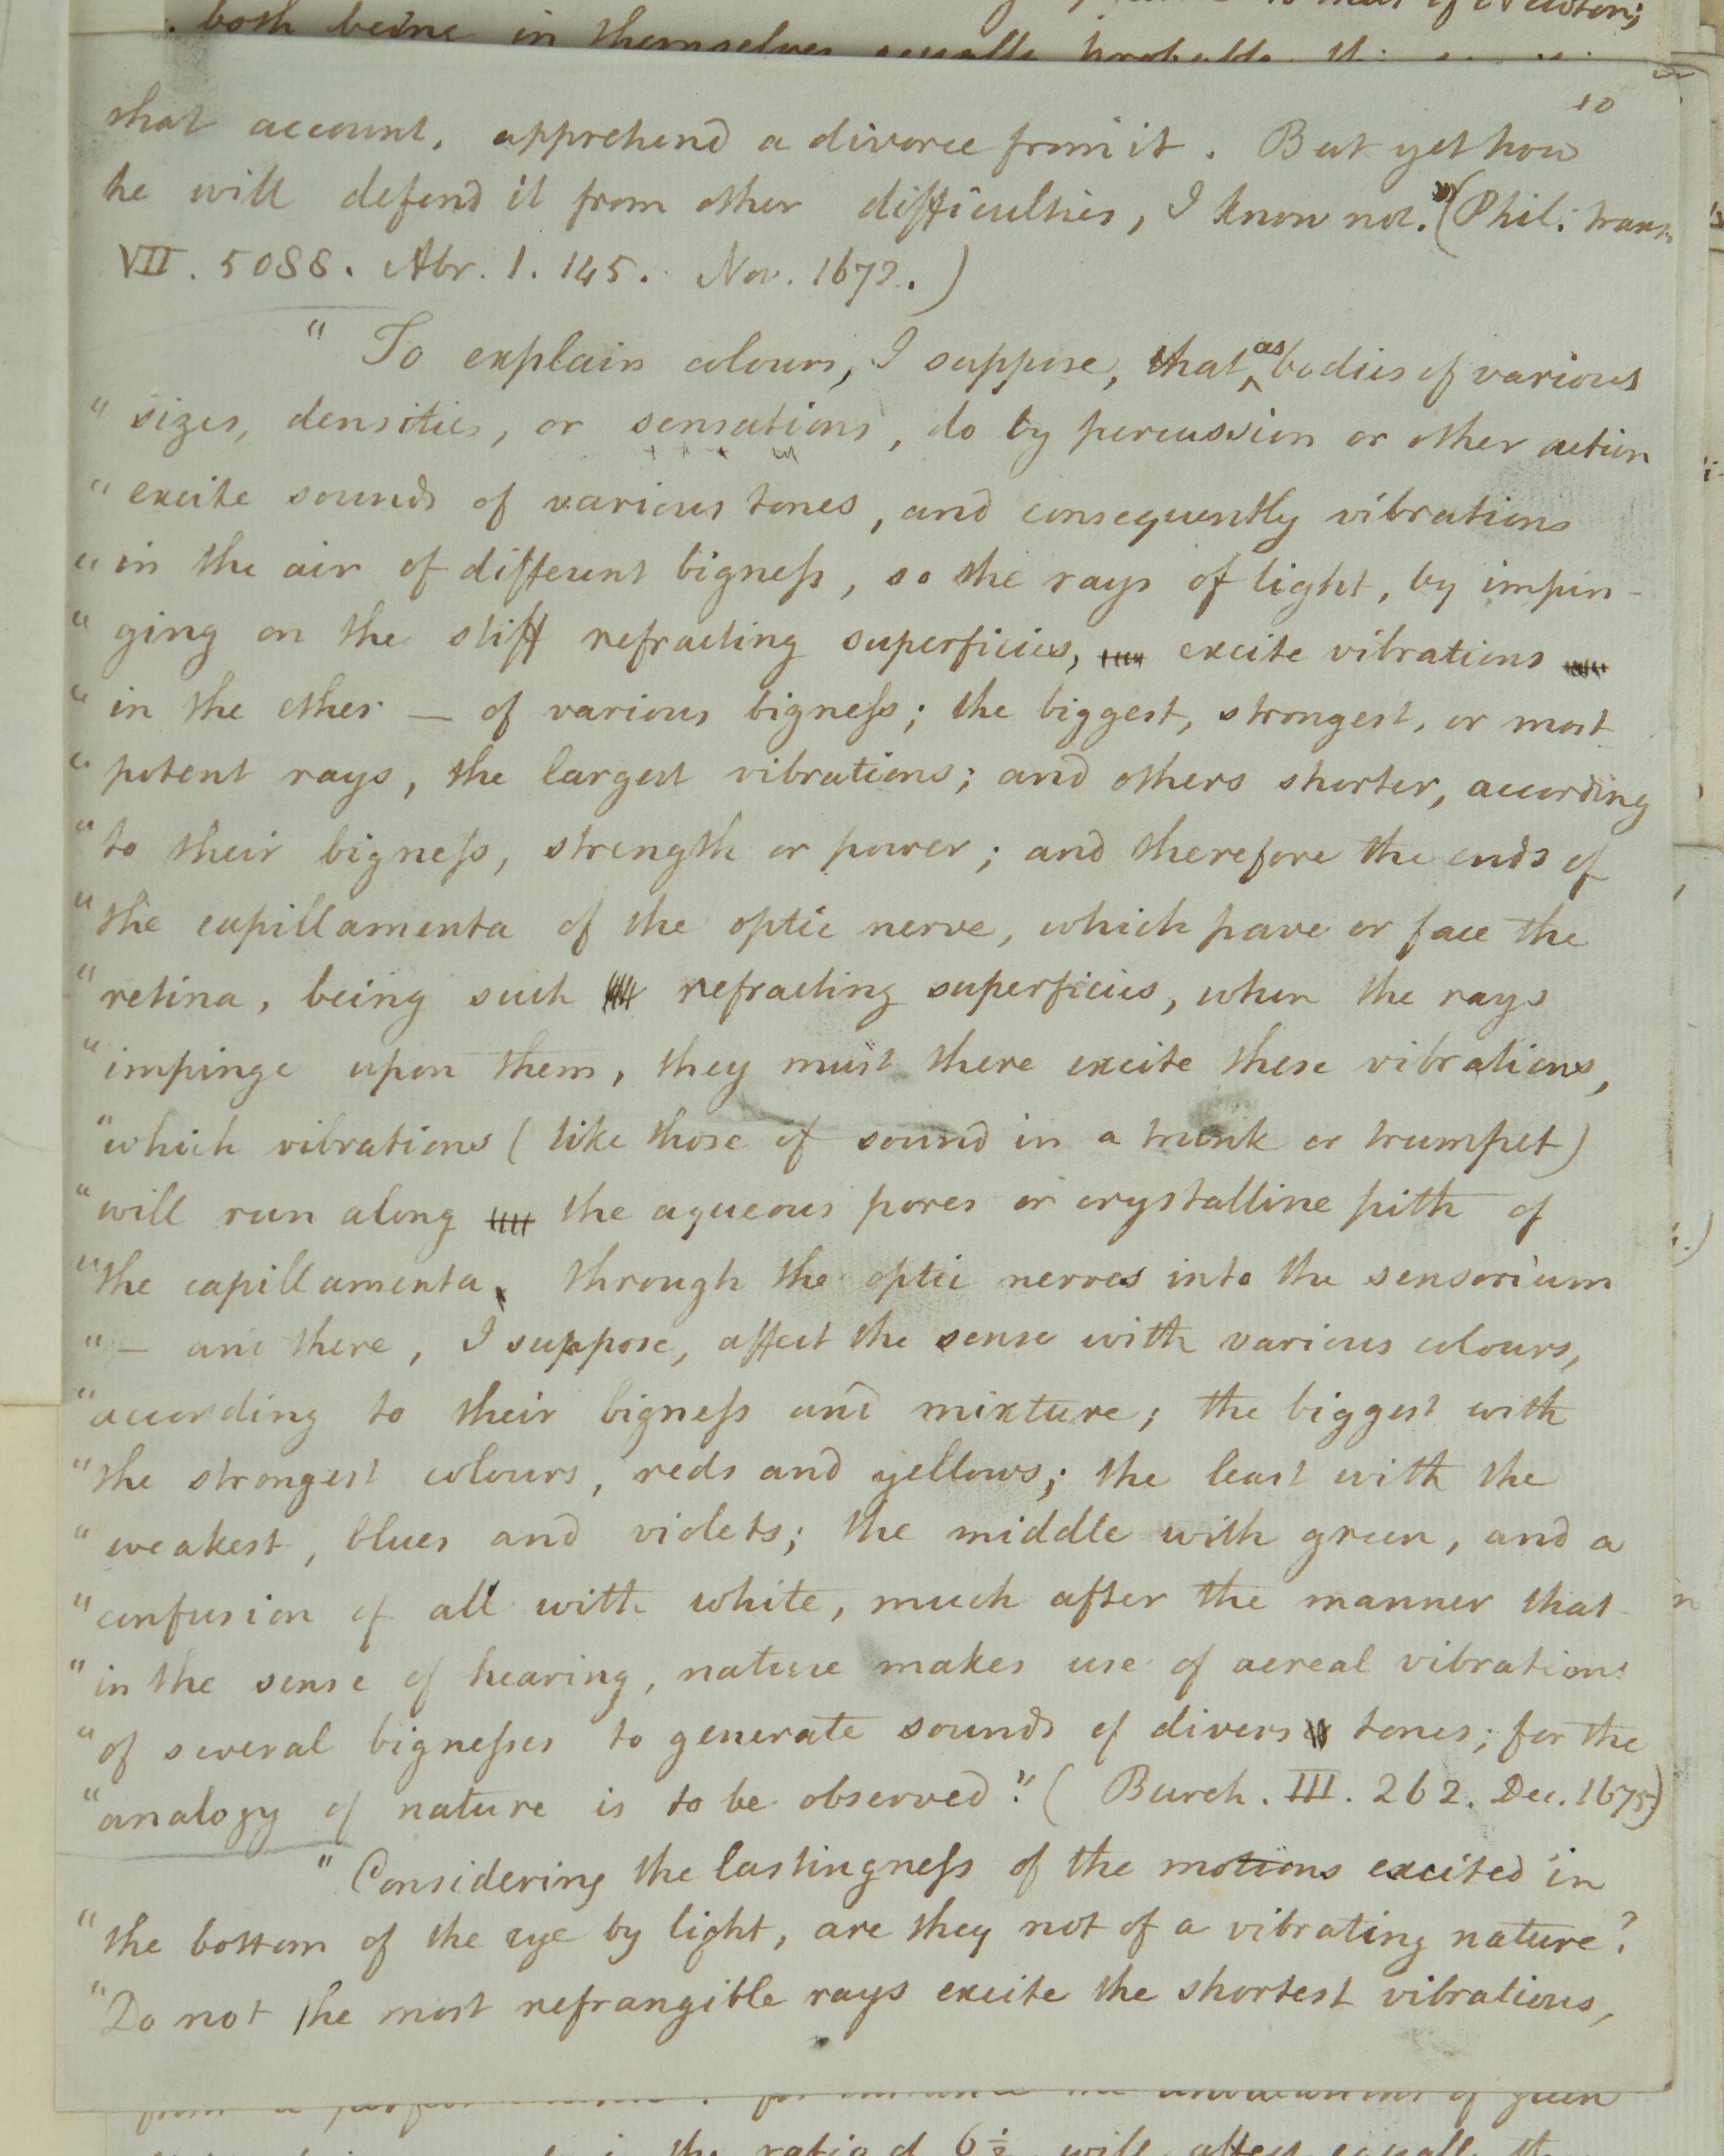 both being in themselves equally probable
10
that account, apprehend a divorce from it. But yet how
he will defend it from other difficulties, I know not." (Phil. trans.
VII. 5088. Abr. 1. 145. Nov. 1672.)
" To explain colours, I suppose, that as bodies of various
" sizes, densities, or sensations, do by percussion or other action
" excite sounds of various tones, and consequently vibrations
" in the air of different bigneſs, so the rays of light, by impin-
" ging on the stiff refracting superficies, excite vibrations
" in the ether — of various bigneſs; the biggest, strongest, or most
" potent rays, the largest vibrations; and others shorter, according
" to their bigneſs, strength or power; and therefore the ends of
" the capillamenta of the optic nerve, which pave or face the
" retina, being such refracting superficies, when the rays
" impinge upon them, they must there excite these vibrations,
" which vibrations (like those of sound in a trunk or trumpet)
" will run along the aqueous pores or crystalline pith of
" the capillamenta, through the optic nerves into the sensorium
" — and there, I suppose, affect the sense with various colours,
" according to their bigneſs and mixture; the biggest with
" the strongest colours, reds and yellows; the least with the
" weakest, blues and violets; the middle with green, and a
" confusion of all with white, much after the manner that
" in the sense of hearing, nature makes use of aereal vibrations
" of several bigneſses to generate sounds of divers tones; for the
" analogy of nature is to be observed." (Burch. III. 262. Dec. 1675)
" Considering the lastingneſs of the motions excited in
" the bottom of the eye by light, are they not of a vibrating nature?
" Do not the most refrangible rays excite the shortest vibrations,
the ratio of 6½ will affect equally